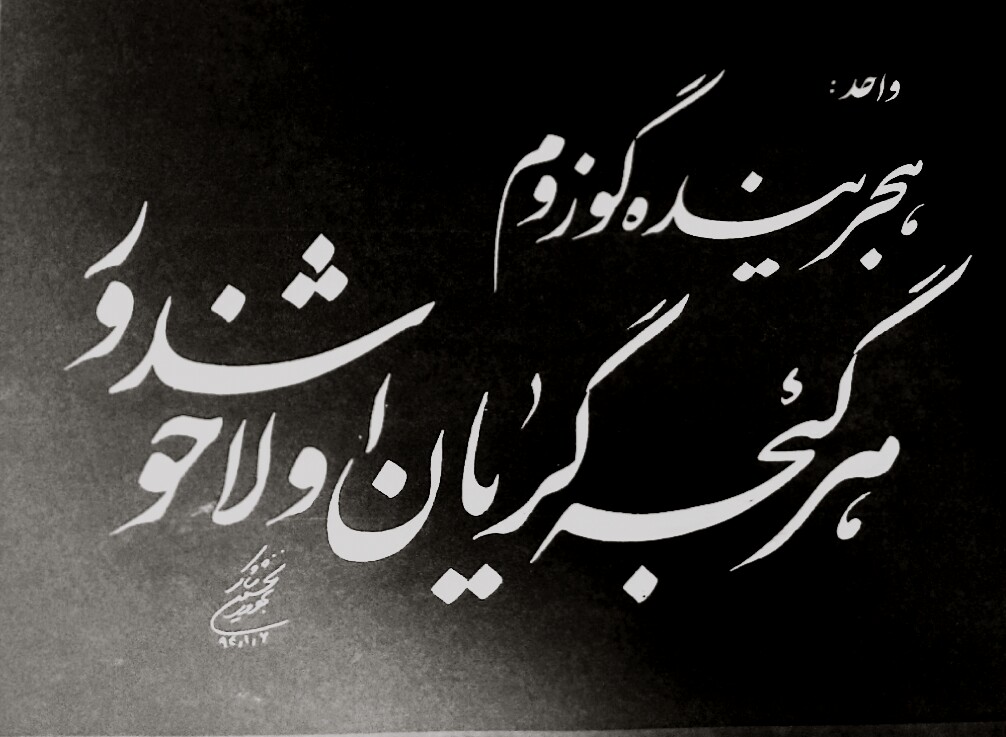 واحد:
هجرینده گوزوم
هر گئجه گریان اولاجوشدور
۹۴،۱،۶